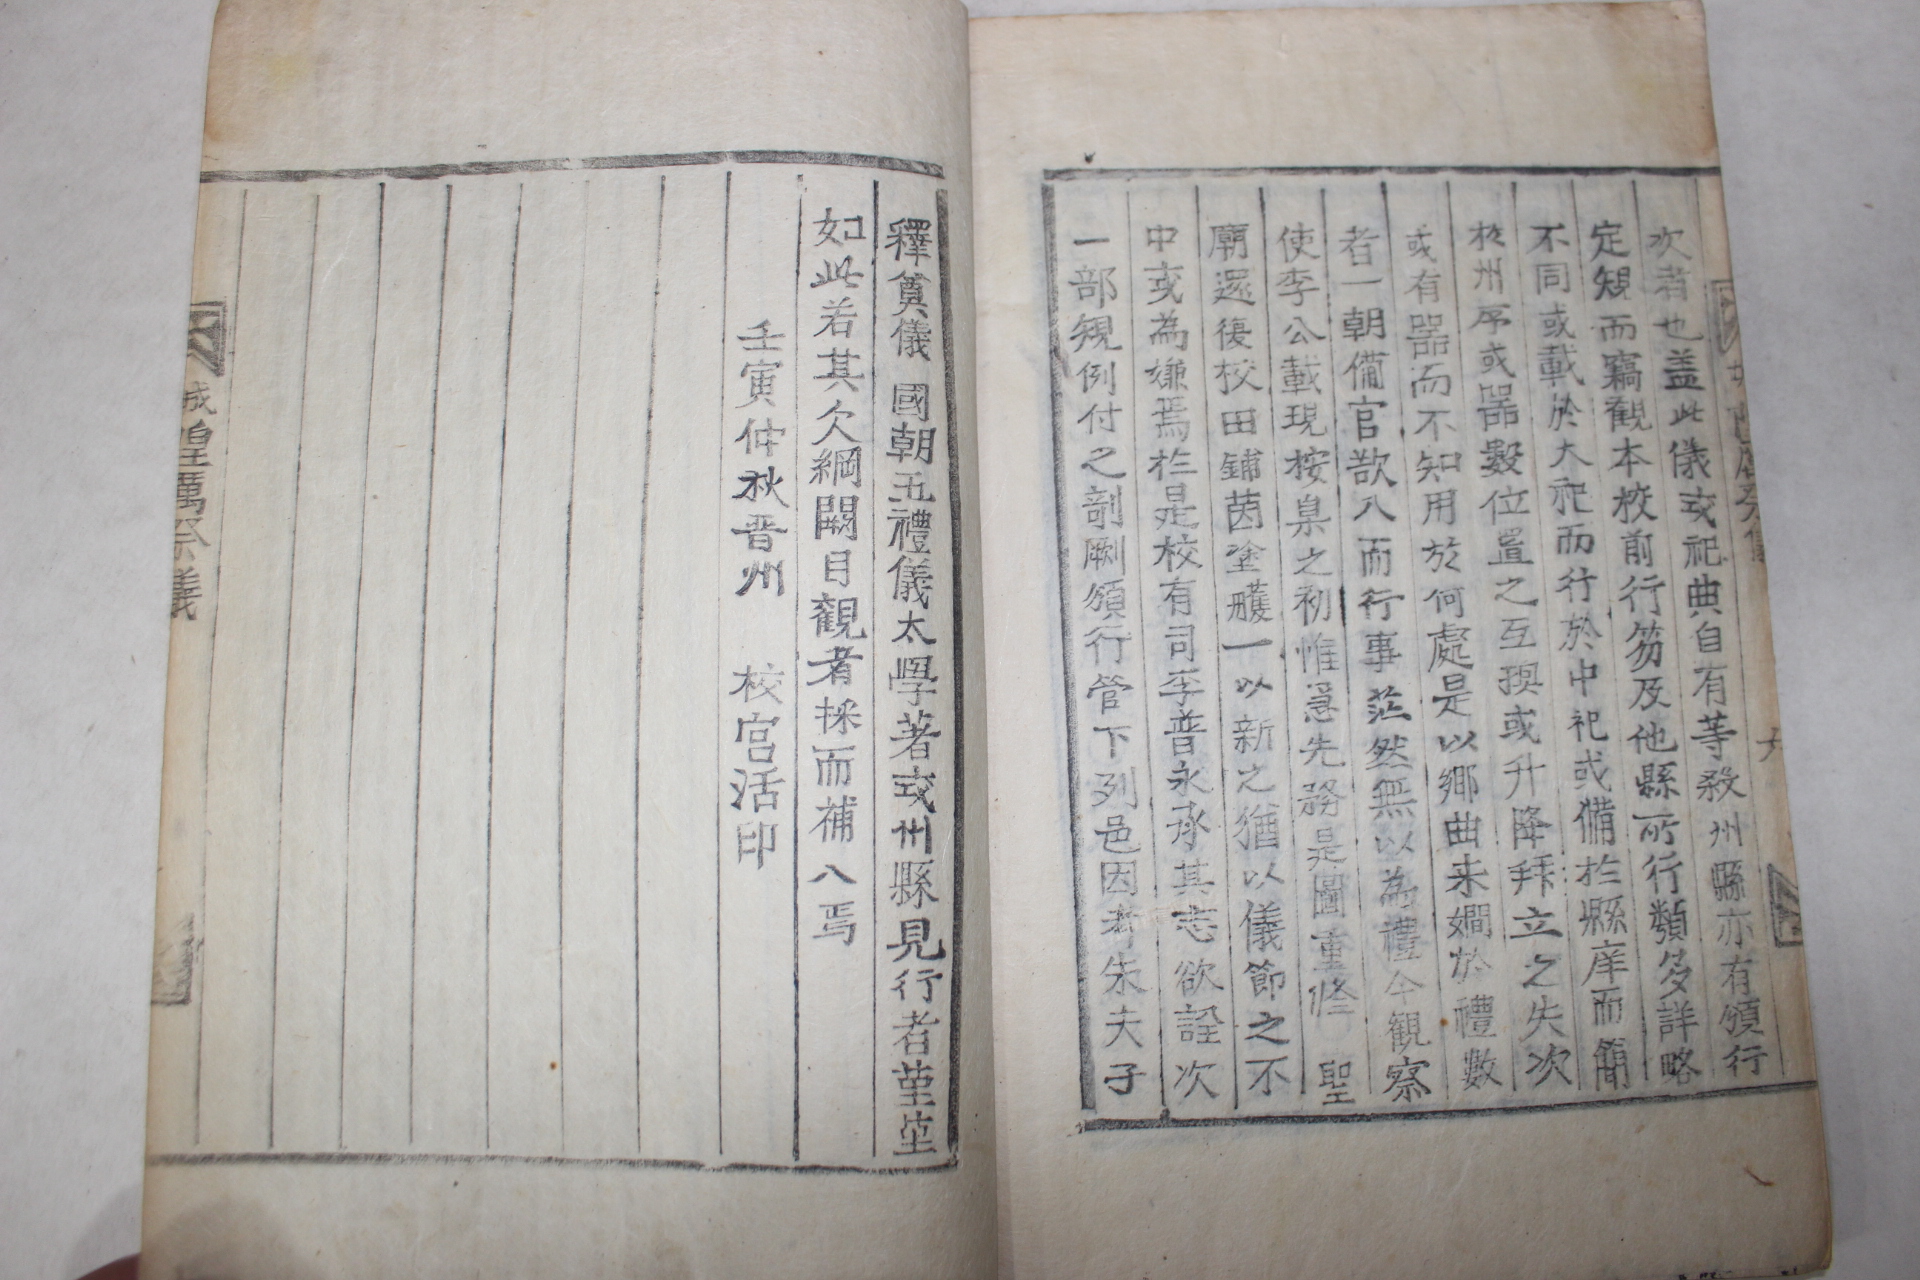 次者也盖此儀或祀典自有等殺州縣亦有頒行
定規而竊觀本校前行笏及他縣所行類多詳略
不同或載於大祀而行於中祀或備於縣庠而簡
於州序或器數位置之互換或升降拜立之失次
或有器而不知用於何處是以鄉曲未嫺於禮數
者一朝備官欿八而行事茫然無以為禮今觀察
使李公載現按臬之初惟急先務是圖重修 聖
廟還復校田鋪茵塗雘一以新之猶以儀節之不
中或為嫌焉於是校有司李普永承其志欲詮次
一部規例付之剞劂頒行管下列邑因考朱夫子
城隍厲祭儀
釋奠儀 國朝五禮儀太學著或州縣見行者堇堇
如此若其欠綱闕目觀者採而補八焉
壬寅仲秋晋州 校宮活印
城隍厲祭儀